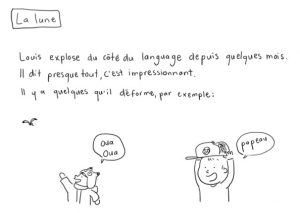 La lune
Louis explose du côté du language depuis quelques mois.
Il dit presque tout, c'est impressionnant.
Il y a quelques qu'il déforme, par exemple:
Oua
Oua
papeau